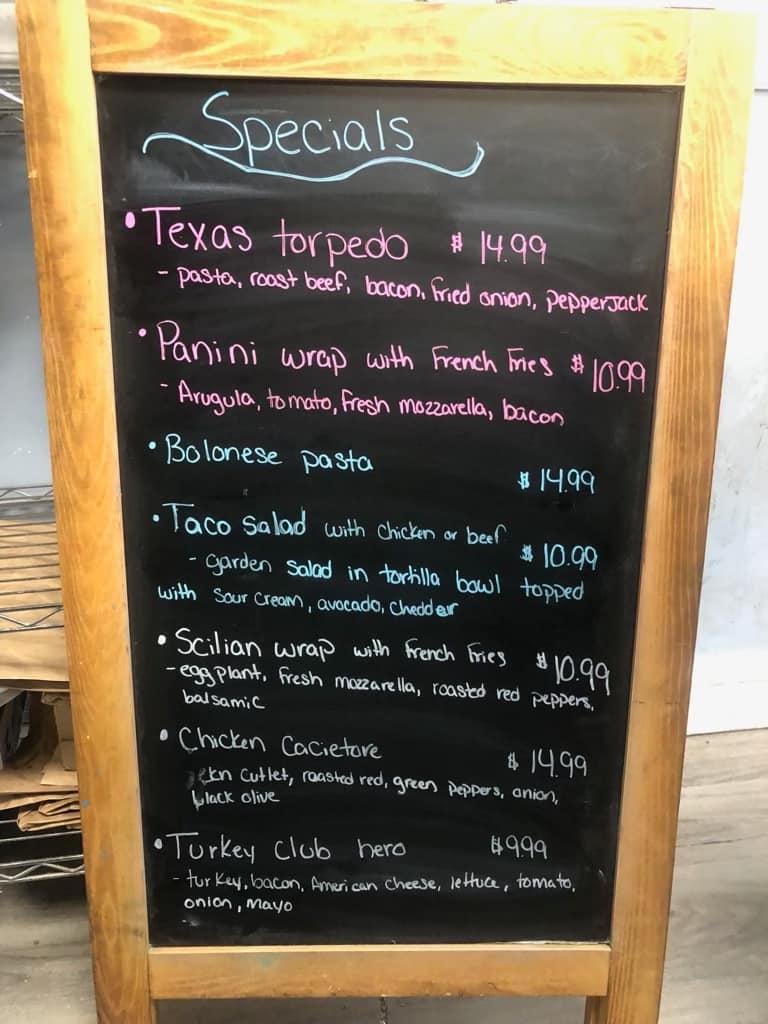 Specials
• Texas torpedo $ 14.99
- pasta, roast beef, bacon, fried onion, pepperjack
• Panini wrap with French Fries $ 10.99
- Arugula, tomato, fresh mozzarella, bacon
• Bolonese pasta $ 14.99
• Taco salad with chicken or beef $ 10.99
- garden salad in tortilla bowl topped
with sour cream, avocado, chedder
• Scilian wrap with French Fries $ 10.99
- eggplant, fresh mozzarella, roasted red peppers,
balsamic
• Chicken Cacietore $ 14.99
cutlet, roasted red, green peppers, onion,
black olive
• Turkey club hero $9.99
- turkey, bacon, American cheese, lettuce, tomato,
onion, mayo